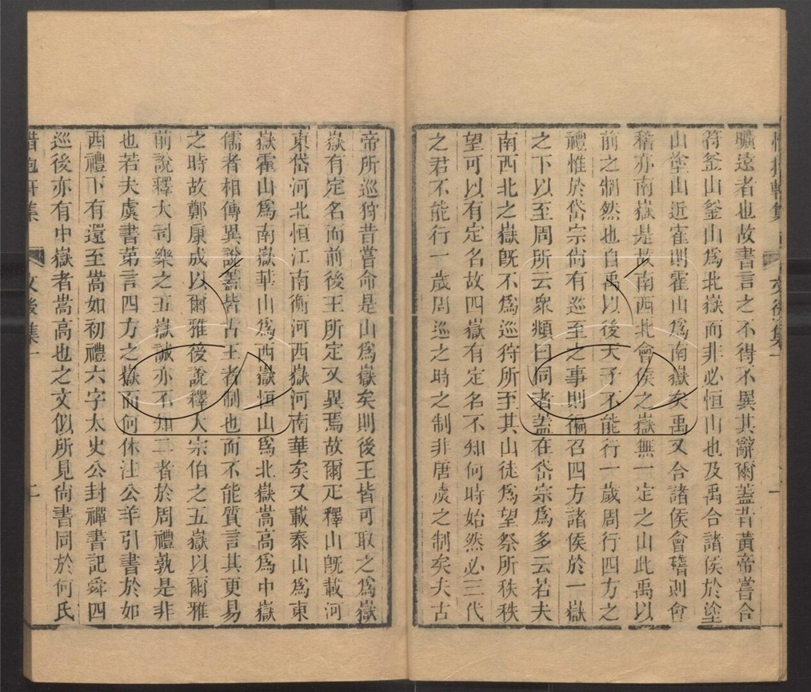 曠遠者也故書言之不得不異其辭爾蓋昔黃帝嘗合
符釜山釜山爲北嶽而非必恒山也及禹合諸侯於塗
山塗山近霍則霍山爲南嶽矣禹又合諸侯會稽則會
稽亦南嶽是故南西北會侯之嶽無一定之山此禹以
前之制然也自禹以後天子不能行一歲周行四方之
禮惟於岱宗尙有巡至之事則徧召四方諸侯於一嶽
之下以至周所云衆頫曰同者蓋在岱宗爲多云若夫
南西北之嶽旣不爲巡狩所至其山徒爲望祭所秩秩
望可以有定名故四嶽有定名不知何時始然必三代
之君不能行一歲周巡之時之制非唐虞之制矣夫古
帝所巡狩昔嘗命是山爲嶽矣則後王皆可取之爲嶽
嶽有定名而前後王所定又異焉故爾疋釋山旣載河
東岱河北恒江南衡河西嶽河南華矣又載泰山爲東
嶽霍山爲南嶽華山爲西嶽恒山爲北嶽嵩高爲中嶽
儒者相傳異說蓋皆古王者制也而不能質言其更易
之時故鄭康成以爾雅後說釋大宗伯之五嶽以爾雅
前說釋大司樂之五嶽誠亦不知二者於周禮孰是非
也若夫虞書第言四方之嶽而何休注公羊引書於如
西禮下有還至嵩如初禮六字太史公封禪書記舜四
巡後亦有中嶽者嵩高也之文似所見尙書同於何氏
惜抱軒集
文後集一
二